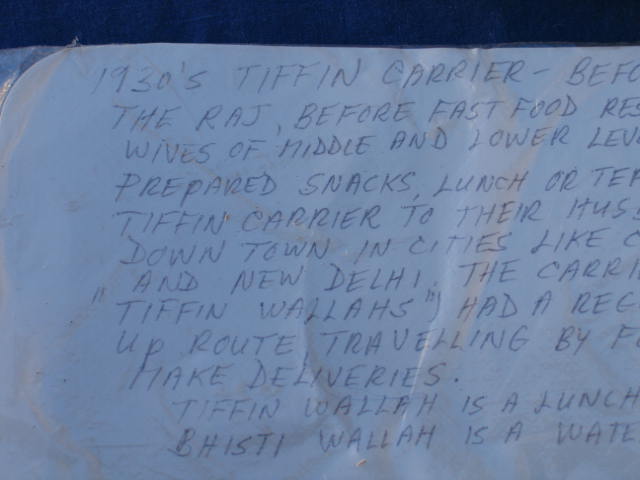 1930's TIFFIN CARRIER - BEFO
THE RAJ, BEFORE FAST FOOD RES
WIVES OF MIDDLE AND LOWER LEVE
PREPARED SNACKS, LUNCH OR TEA
TIFFIN CARRIER TO THEIR HUS
DOWN TOWN IN CITIES LIKE C
AND NEW DELHI, THE CARRI
"TIFFIN WALLAHS", HAD A REG
UP ROUTE TRAVELLING BY FO
MAKE DELIVERIES.
TIFFIN WALLAH IS A LUNCH
BHISTI WALLAH IS A WATE